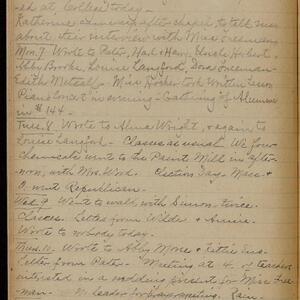 ed at College today -
Katherine came in after chapel to tell me
about their interview with Miss Freeman
Mon. 7. Wrote to Pater, Hat & Harv, Uncle Hubert,
Abby Brooke, Louise Langford, Dora Freeman
Edith Metcalf - Miss Hosher took Written Lesson
Piano Concert in evening - Gathering of Alumnae
in # 144 -
Tues. 8. Wrote to Alma Wright, & again to
Louise Langford - Classes as usual. We four
went to the Paint Mill in after-
noon, with Mrs. Wood. Election Day - Mass &
O. went Republican -
Wed 9. Went to walk, with Simon twice.
Letter from Wilde & Annie
Wrote to nobody today -
10. Wrote to Abby Morse &
Letter from Pater - Meeting at 4. of teachers
interested in a wedding present for Miss Free-
man - No leader for